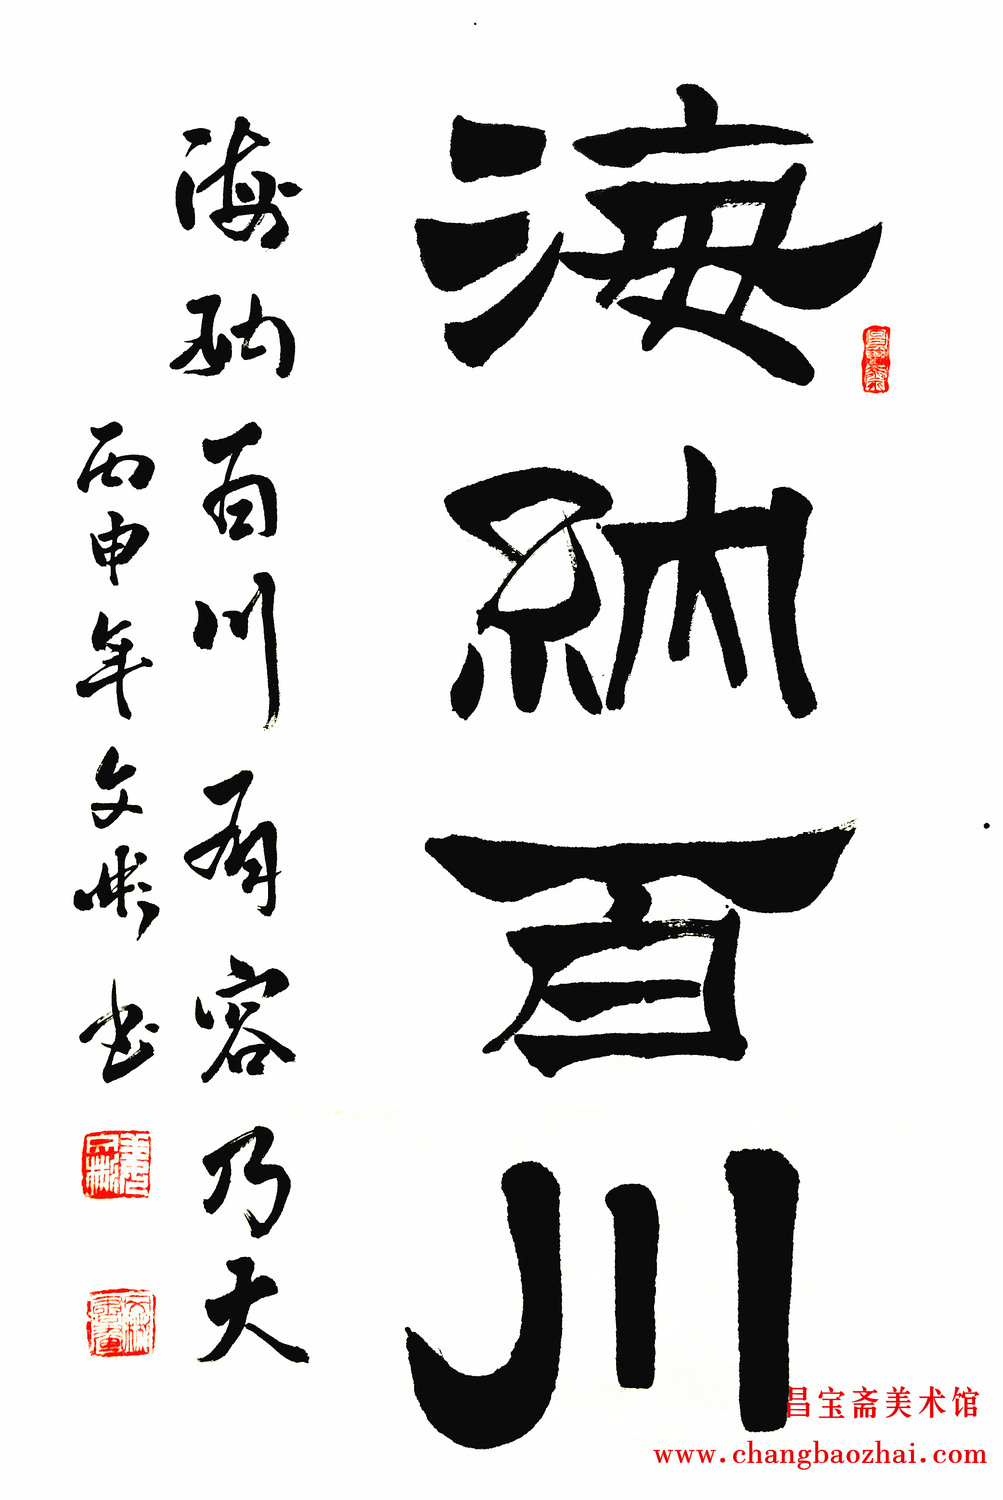 海納百川
海纳百川有容乃大
丙申年文彬书
昌宝斋美术馆
www.changbaozhai.com